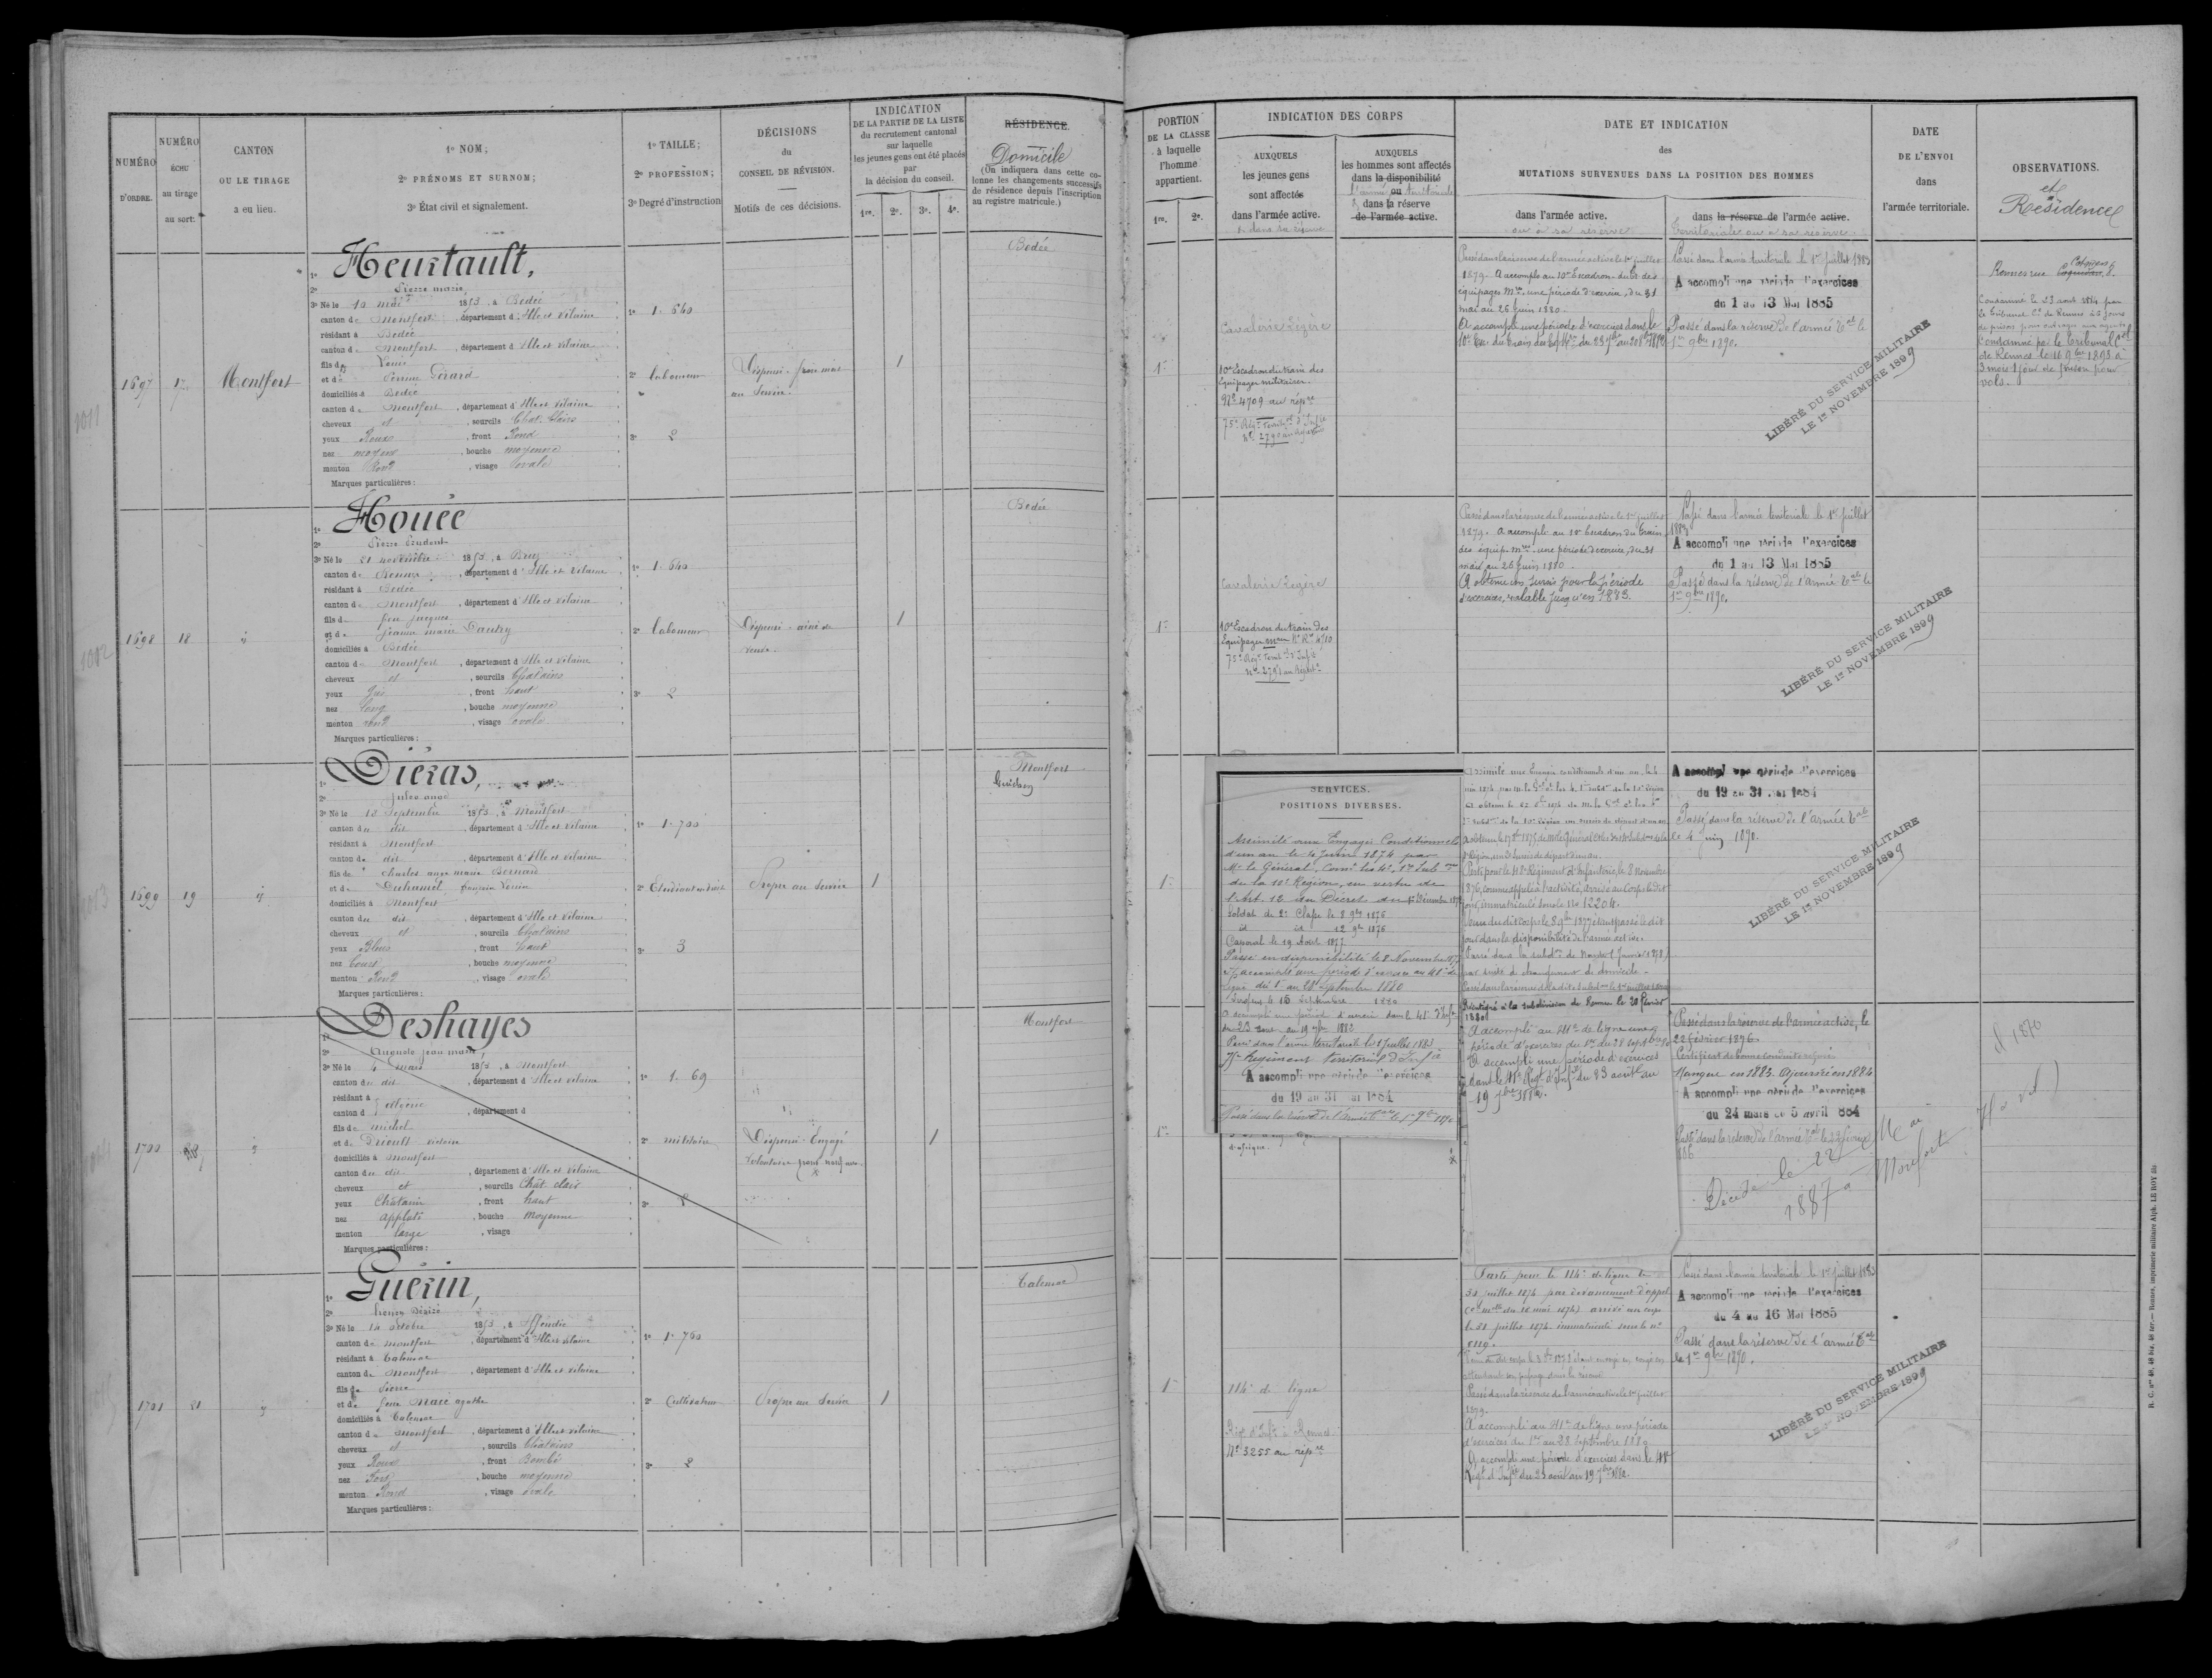 NUMÉRO
D'ORDRE.
NUMÉRO
ÉCHU
au tirage
au sort:
CANTON
OU LE TIRAGE
a eu lieu.
1º NOM;
2º PRÉNOMS ET SURNOM;
3º État civil et signalement.
1º TAILLE;
2º PROFESSION;
3º Degré d'instruction
DÉCISIONS
du
CONSEIL DE RÉVISION.
Motifs de ces décisions.
INDICATION
DE LA PARTIE DE LA LISTE
du recrutement cantonal
sur laquelle
les jeunes gens ont été placés
par
la décision du conseil.
1re. 2e. 3e. 4e.
RÉSIDENCE
Domicile
(On indiquera dans cette co-
lonne les changements successifs
de résidence depuis l'inscription
au registre matricule.)
PORTION
DE LA CLASSE
à laquelle
l'homme
appartient.
1re. 2e.
INDICATION DES CORPS
AUXQUELS
les jeunes gens
sont affectés
dans l'armée active.
& dans sa réserve
AUXQUELS
les hommes sont affectés
dans la disponibilité
l'armée ou territoriale
& dans la réserve
de l'armée active.
DATE ET INDICATION
des
MUTATIONS SURVENUES DANS LA POSITION DES HOMMES
dans l'armée active.
ou à sa réserve
dans la réserve de l'armée active.
territoriale ou à sa réserve.
DATE
DE L'ENVOI
dans
l'armée territoriale.
OBSERVATIONS.
et
Résidence
1697
17
Montfort
1º Heurtault,
2º Pierre marie
3º Né le 10 mai 1853, à Bedée
canton de Montfort, département d'Ille et Vilaine
résidant à Bedée
canton de Montfort, département d'Ille et Vilaine
fils de Louis
et de Perrine Gérard
domiciliés à Bedée
canton de Montfort, département d'Ille et Vilaine
cheveux et, sourcils Chat. Clairs
yeux Roux, front Rond
nez moyen, bouche moyenne
menton Rond, visage ovale
Marques particulières:
1º 1.640
2º laboureur
3º 2
Dispensé - frère mort
au Service.
1
Bedée
1re
Cavalerie Légère
10e Escadron du train des
Equipages militaires.
Nº 4709 au répre
75e Régt Territal d'Infie
Nº 2790 au Répertre
Passé dans la réserve de l'armée active le 1er juillet
1879. A accompli au 10e Escadron du tr des
équipages mres une période d'exercice, du 31
mai au 26 juin 1880.
A accompli une période d'exercices dans le
Passé dans l'armée territoriale le 1er juillet 1883
A accompli une période d'exercices
du 1 au 13 Mai 1885
Passé dans la réserve de l'armée tale le
1er 9bre 1890.
LIBÉRÉ DU SERVICE MILITAIRE
LE 1er NOVEMBRE 1899
Rennes rue
Condamné le 23 août 1884 par
le Tribunal Cel de Rennes à 6 jours
de prison pour outrages aux agents
Condamné par le Tribunal Cel
de Rennes le 16 9bre 1893 à
3 mois 1 jour de prison pour
vols.
1698
18
1º Houée
2º Pierre Prudent
3º Né le 21 novembre 1853, à Bruz
canton de Rennes, département d'Ille et Vilaine
résidant à Bedée
canton de Montfort, département d'Ille et Vilaine
fils de feu Jacques
et de Jeanne marie Dautry
domiciliés à Bedée
canton de Montfort, département d'Ille et Vilaine
cheveux et, sourcils Chatains
yeux Gris, front haut
nez long, bouche moyenne
menton rond, visage ovale
Marques particulières:
1º 1.640
2º laboureur
3º 2
Dispensé - aîné de
veuve.
1
Bedée
1re
Cavalerie Légère
10e Escadron du train des
Equipages mres
75e Régt Territal d'Infie
Nº 2791 au Répertre
Passé dans la réserve de l'armée active le 1er juillet
1879. A accompli au 10e Escadron du train
des équip. mres une période d'exercice, du 31
mai au 26 juin 1880.
A obtenu un sursis pour la période
d'exercices, valable jusqu'en 1883.
Passé dans l'armée territoriale le 1er juillet
1883
A accompli une période d'exercices
du 1 au 13 Mai 1885
Passé dans la réserve de l'armée tale le
1er 9bre 1890.
LIBÉRÉ DU SERVICE MILITAIRE
LE 1er NOVEMBRE 1899
1699
19
1º Diéras,
2º Jules ange
3º Né le 10 Septembre 1853, à Montfort
canton du dit, département d'Ille et Vilaine
résidant à Montfort
canton du dit, département d'Ille et Vilaine
fils de Charles ange marie Bernard
et de Duhamel
domiciliés à Montfort
canton du dit, département d'Ille et Vilaine
cheveux et, sourcils Chatains
yeux Bleus, front haut
nez Court, bouche moyenne
menton Rond, visage ovale
Marques particulières:
1º 1.700
2º Etudiant en droit
3º 3
Propre au Service
1
Montfort
1re
SERVICES.
POSITIONS DIVERSES.
Assimilé aux Engagés Conditionnels
d'un an le 4 Juin 1874 par
Mr le Général, Comt les 4e, 1re Subdons
de la 10e Région, en vertu de
l'Art. 12 du Décret du 1er Décembre 187
Soldat de 2e Classe le 8 9bre 1876
id id 12 9bre 1876
Caporal le 19 Août 1877
Passé en disponibilité le 8 Novembre 1877
A accompli une période d'exercice au 41e de
ligne du 1er au 28 Septembre 1880
Sergent le 15 Septembre 1880
A accompli une période d'exercice dans le 41e d'Infie
du 23 août au 19 7bre 1882
Passé dans l'armée territoriale le 1er Juillet 1883
75e Régiment territorial d'Infie
A accompli une période d'exercices
du 19 au 31 Mai 1884
Passé dans la réserve de l'armée tale le 1er 9bre 1890
Parti pour le 118e Régiment d'Infanterie, le 8 Novembre
1876, comme appelé à l'activité, arrivé au Corps le dit
jour, immatriculé sous le No 12204.
Venu du dit Corps le 8 9bre 1877 étant passé le dit
jour dans la disponibilité de l'armée active.
Passé dans la subdon de Nantes
par suite de changement de domicile.
Réintégré à la subdivision de Rennes le 20 février
1880
A accompli au 41e de ligne une
période d'exercices du 1er au 28 septbre 80
A accompli une période d'exercices
dans le 41e Régt d'Infie du 23 août au
19 7bre 1882.
A accompli une période d'exercices
du 19 au 31 Mai 1884
Passé dans la réserve de l'armée tale
le 4 juin 1890.
LIBÉRÉ DU SERVICE MILITAIRE
LE 1er NOVEMBRE 1899
1700
1º Deshayes
2º Auguste Jean marie
3º Né le 4 mars 1853, à Montfort
canton du dit, département d'Ille et Vilaine
résidant à Algérie
canton d, département d
fils de michel
et de Drieult victoire
domiciliés à Montfort
canton du dit, département d'Ille et Vilaine
cheveux et, sourcils Chât. clair
yeux Châtain, front haut
nez applati, bouche moyenne
menton large, visage
Marques particulières:
1º 1.69
2º militaire
3º 2
Dispensé - Engagé
Volontaire
1
Montfort
1re
d'afrique.
Passé dans la réserve de l'armée active, le
22 février 1876.
Certificat de bonne conduite refusé
Manque en 1883. Ajourné en 1884
A accompli une période d'exercices
du 24 mars au 5 avril 884
Passé dans la réserve de l'armée tale le 22 février
Décédé le 22 Mai
1887 à Montfort
1701
21
1º Guérin,
2º
3º Né le 14 octobre 1853, à Iffendic
canton de Montfort, département d'Ille et Vilaine
résidant à Talensac
canton de Montfort, département d'Ille et Vilaine
fils de Pierre
et de feue Macé agathe
domiciliés à Talensac
canton de Montfort, département d'Ille et Vilaine
cheveux et, sourcils Châtains
yeux Roux, front Bombé
nez Fort, bouche moyenne
menton Rond, visage ovale
Marques particulières:
1º 1.760
2º Cultivateur
3º 2
Propre au Service
1
Talensac
1re
114e de ligne
Régt d'Infie à Rennes
Nº 3255 au répre
Parti pour le 114e de ligne le
31 juillet 1874 par devancement d'appel
arrivé au corps
le 31 juillet 1874 immatriculé sous le nº
Passé dans la réserve de l'armée active le 1er juillet
1879.
A accompli au 41e de ligne une période
d'exercices du 1er au 28 Septembre 1880
A accompli une période d'exercices dans le 41e
Régt d'Infie du 23 août au 19 7bre 1882.
Passé dans l'armée territoriale le 1er juillet 1883
A accompli une période d'exercices
du 4 au 16 Mai 1885
Passé dans la réserve de l'armée tale
le 1er 9bre 1890.
LIBÉRÉ DU SERVICE MILITAIRE
LE 1er NOVEMBRE 1899
R. C. nos 48, 48 bis, 48 ter.— Rennes, imprimerie militaire Alph. LE ROY fils